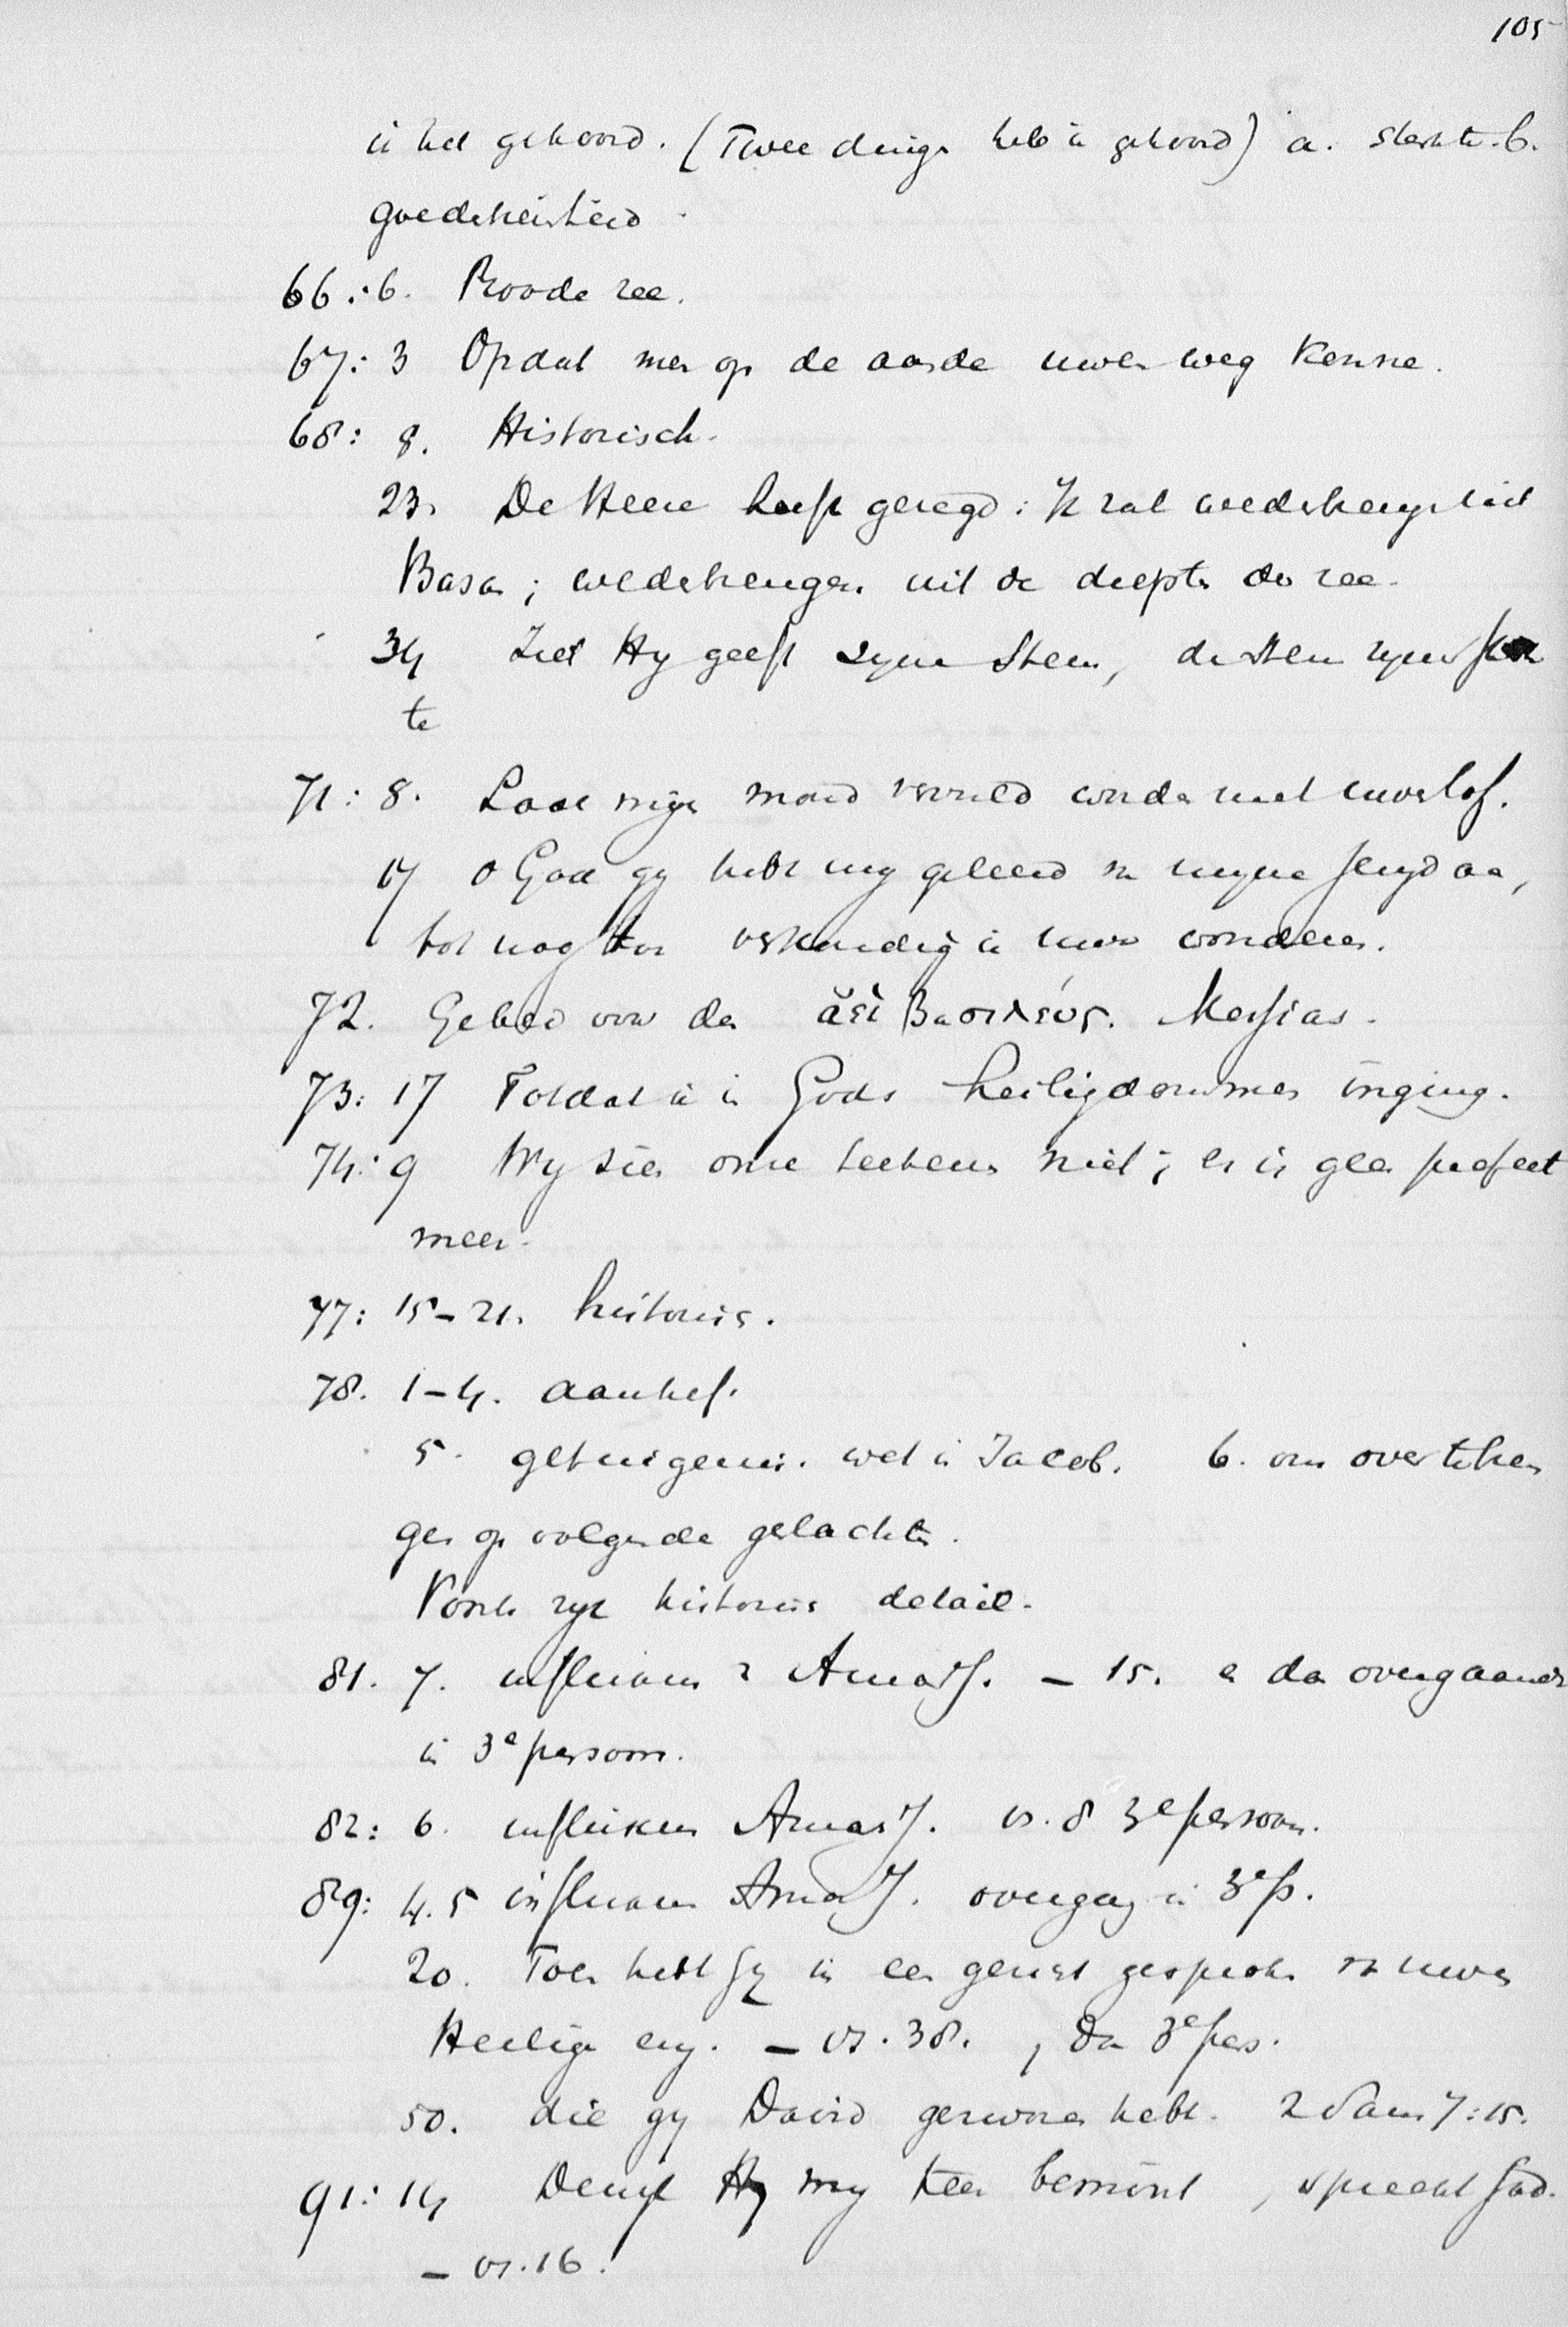 105
ik het gehoord. (Twee dinge heb ik gehoord) a. sterkte. b.
goedertierenheid.
66:6. Roode zee.
67:3 Opdat men op de aarde uwen weg kenne.
68: 8. Historisch.
23. De Heere heeft gezegd: Ik zal wederbrengen uit
Basan; wederbrengen uit de diepte der zee.
34 Ziet Hy geeft zyne Stem, de stem zyner sterk
te
71: 8. Laat mijn mond vervuld worden met uwen lof.
17 o God gy hebt my geleerd van myne jeugd aan,
tot nog toe verkondig ik uwe wonderen.
72. Gebed voor den ἀεὶ Βασιλεύς. Messias.
73: 17 Totdat ik in Gods heiligdommen inging.
74: 9 Wy zien onze teekenen niet; er is geen profeet
meer.
77: 15-21. historisc.
78. 1-4. aanhef.
5. getuigenis. wet in Jacob. 6. om over te bren
gen op volgende geslachten.
Voorts zyn historisc detail.
81. 7. influxus Amos J. — 15. en dan overgaande
in 3e persoon.
82: 6. Amos J. vs. 8 3e persoon.
89: 4.5 Amos J. overgang in 3e p.
20. Toen hebt Gy in een gezicht gesproken van uwen
Heilige enz. — vs. 38. , dan 3e pers.
50. die gy David gezworen hebt. 2 Sam 7:15.
91: 14 Dewyl Hy my zeer bemint, spreekt God.
— vs. 16.